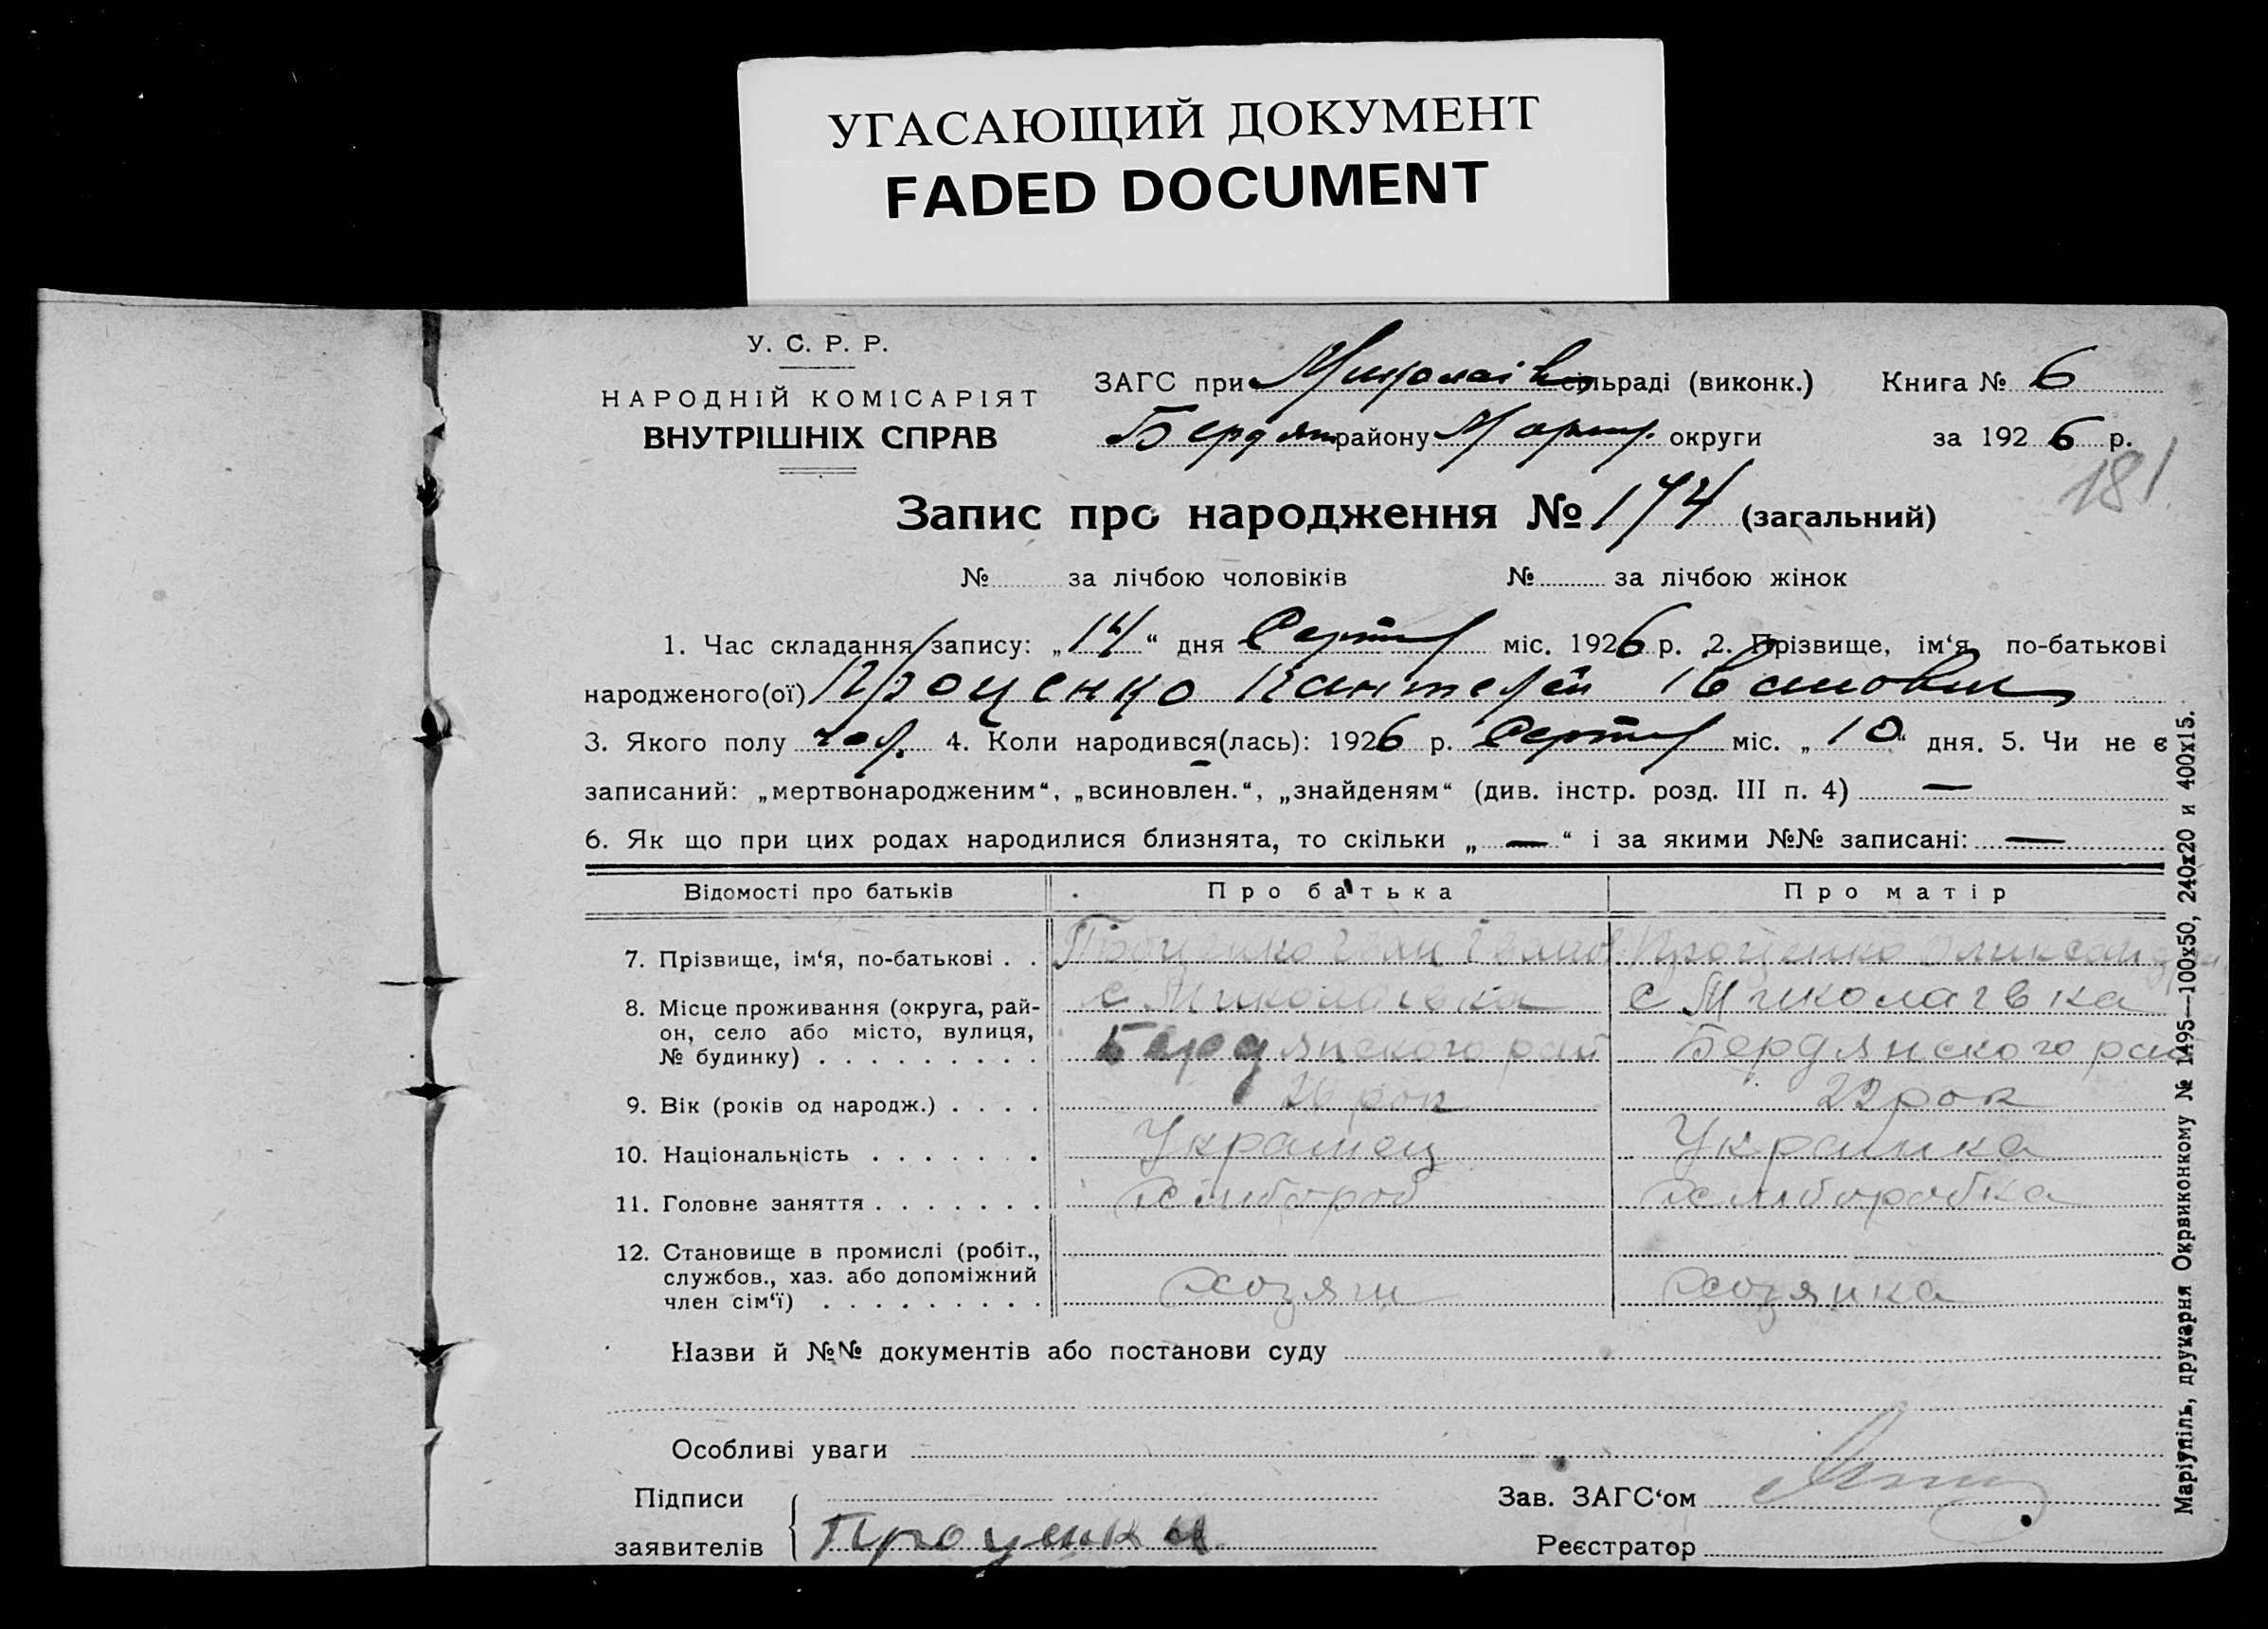 УГАСАЮЩИЙ ДОКУМЕНТ
FADED DOCUMENT
У. С. Р. Р.
НАРОДНІЙ КОМІСАРІЯТ
ВНУТРІШНІХ СПРАВ
ЗАГС при Миколаїв сільраді (виконк.) Книга № 6
Бердян району Маріуп. округи за 1926 р.
181
Запис про народження № 174 (загальний)
№ за лічбою чоловіків № за лічбою жінок
1. Час складання запису: „14“ дня Септ міс. 1926 р. 2. Прізвище, ім‘я, по-батькові
народженого(ої) Проценко Пантелей Іванович
3. Якого полу чол. 4. Коли народився(лась): 1926 р. Септ міс. „10“ дня. 5. Чи не є
записаний: „мертвонародженим“, „всиновлен.“, „знайденям“ (див. інстр. розд. III п. 4) —
6. Як що при цих родах народилися близнята, то скільки „—“ і за якими №№ записані: —
Відомості про батьків Про батька Про матір
7. Прізвище, ім‘я, по-батькові . . Проценко Іван Іванов Проценко Олександра
8. Місце проживання (округа, рай- с Миколаївка с Миколаївка
он, село або місто, вулиця,
№ будинку) . . . . . . . . . Бердянского рай Бердянского рай
9. Вік (років од народж.) . . . . 26 рок 22 рок
10. Національність . . . . . . . Украинец Украинка
11. Головне заняття . . . . . . . Хлибороб Хлиборобка
12. Становище в промислі (робіт.,
службов., хаз. або допоміжний
член сім‘ї) . . . . . . . . . Хозяин Хозяйка
Назви й №№ документів або постанови суду
Особливі уваги
Підписи Зав. ЗАГС‘ом
заявителів Проценки Реєстратор
Маріупіль, друкарня Окрвиконкому № 1495—100х50, 240х20 и 400х15.